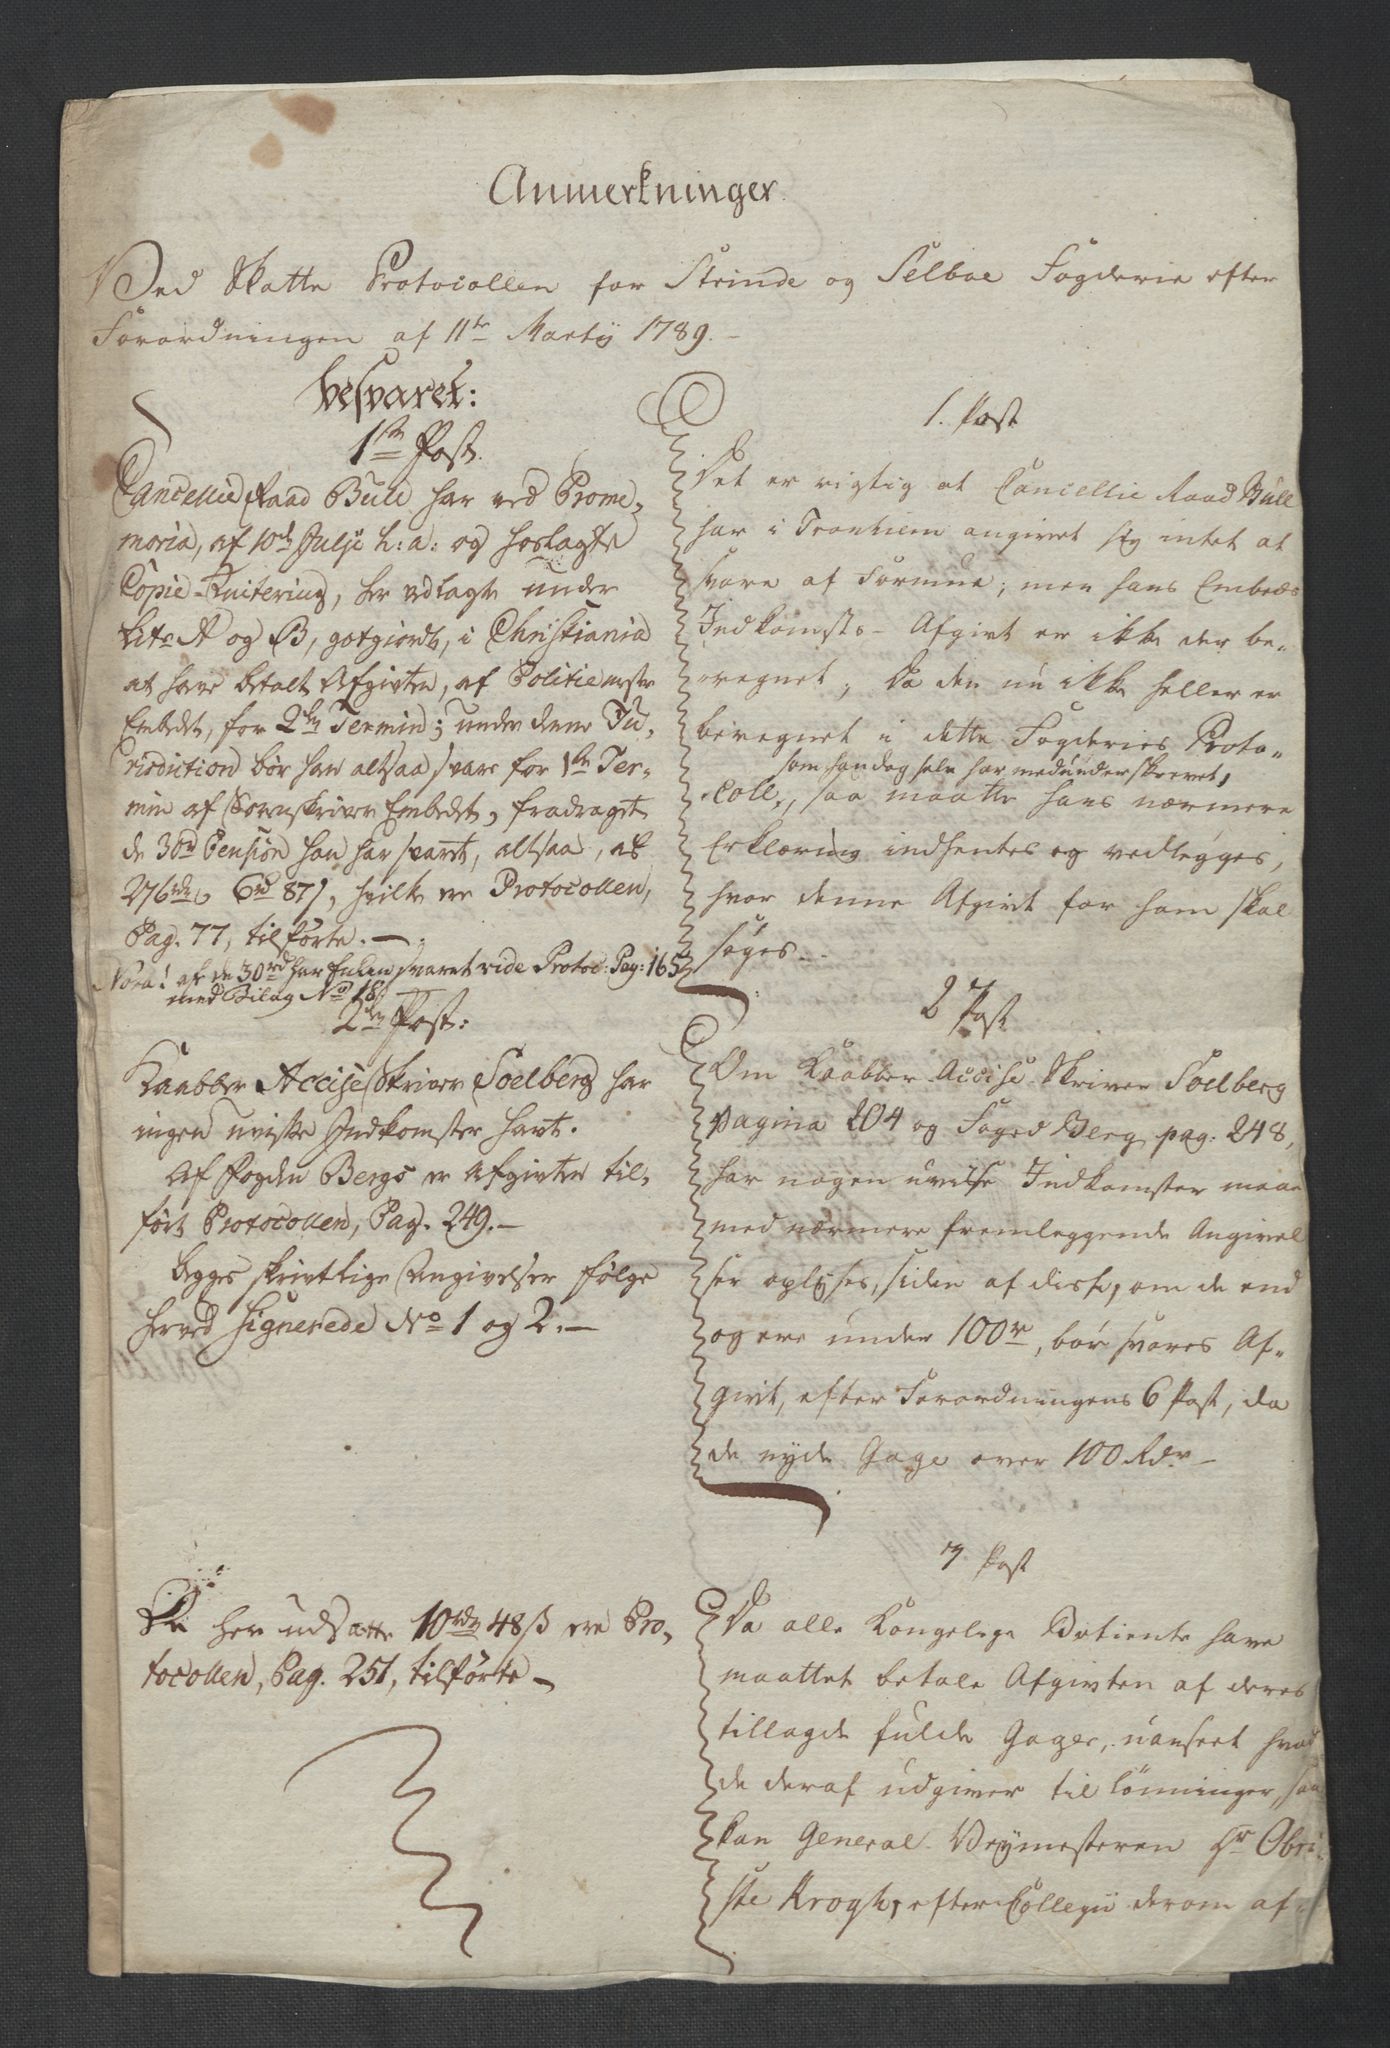 Anmerkninger
Ved Skatte Protocollen for Strinde og Selboe Fogderie efter
Forordningen af 11te Martij 1789. -
besvaret:
1ste Post.
Cancellie Raad Bull har ved Prome-
moria, af 10de Julji h: a: og hoslagte
Copie-Quitering, her vedlagte under
Litr A og B, gotgiordt, i Christiania
at have betalt Afgivten, af Politiemester
Embedet, for 2den Termin; under denne Ju-
risdiction bør han altsaa svare for 1ste Ter-
min af Sorenskriver Embedet, fradraget
de 30rd Pension han har svaret, altsaa, af
276rdr, 6rd 87s, hvilke ere Protocollen,
Pag. 77, tilførte. —
Nota! af de 30rd har Enken svaret vide Protoc: Pag: 165
med Bilag No 18.
2den Post:
Kaabber Accise Skriver Soelberg har
ingen uvisse Indkomster havt.
Af Fogden Bergs er Afgivten til-
ført Protocollen, Pag. 249. —
begges skrivtlige Angivelser følge
herved Signerede No 1 og 2. —
De her udsatte 10rdr 48s ere Pro-
tocollen, Pag. 251, tilførte —
1. Post
Det er rigtig at Cancellie Raad Bull
har i Tronhiem angivet sig intet at
svare af Formue; men hans Embeds
Indkomsts-Afgivt er ikke der be-
regnet; Da den nu ikke heller er
beregnet i dette Fogderies Proto-
som han dog selv har medunderskrevet,
coll, saa maatte hans nærmere
Erklæring indhentes og vedlegges,
hvor denne Afgivt for ham skal
søges. -
2 Post
Om Kaabber Accise Skriver Soelberg
pagina 204 og Foged Berg pag: 248,
har nogen uvisse Indkomster maae
med nærmere fremleggende Angivel
ser oplyses, siden af disse, om de end
og ere under 100rd, bør svares Af-
givt, efter Forordningens 6 Post, da
de nyde Gage over 100 Rdr -
7 Post
Da alle Kongelige Betiente have
maattet betale Afgivten af deres
tillagde fulde Gager, uanseet hvad
de deraf udgiver til Lønninger, saa
kan General-Veymesteren Hr Obri-
ste Krogh, efter Collegii derom af-